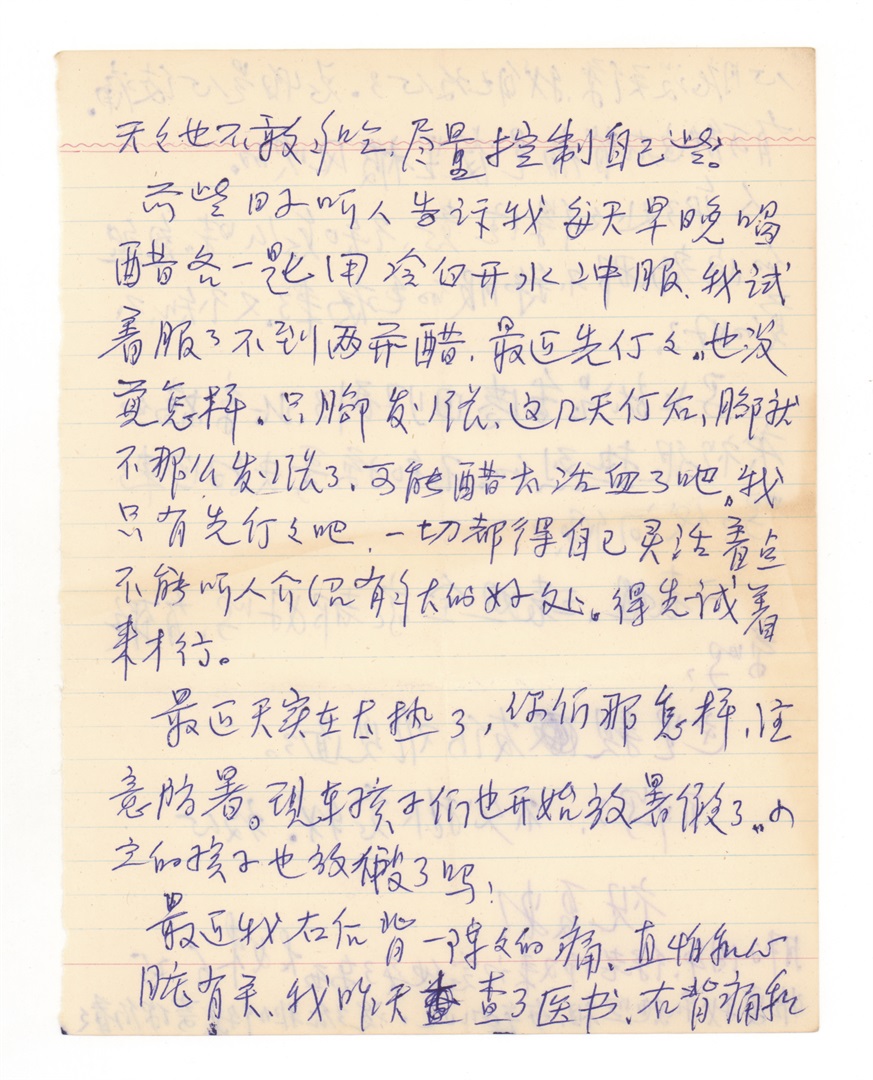 天天也不敢多吃,尽量控制自己些。
前些日子听人告诉我每天早晚喝
醋各一匙用冷白开水冲服、我试
着服了不到两瓶醋.最近先停停。也没
觉怎样。只脚发胀、这几天停后、脚就
不那么发胀了、可能醋太活血了吧,我
只有先停停吧.一切都得自己灵活着点
不能听人介绍有多大的好处。得先试着
来才行。
最近天实在太热了,你们那怎样、注
意防暑。现在孩子们也开始放暑假了。小
的孩子也放假了吗!
最近我右后背一阵阵的痛、直怕和心
脏有关、我昨天查了医书、右背痛和